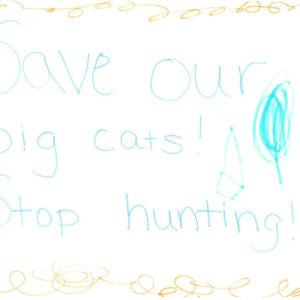 Save our
big cats!
Stop hunting!